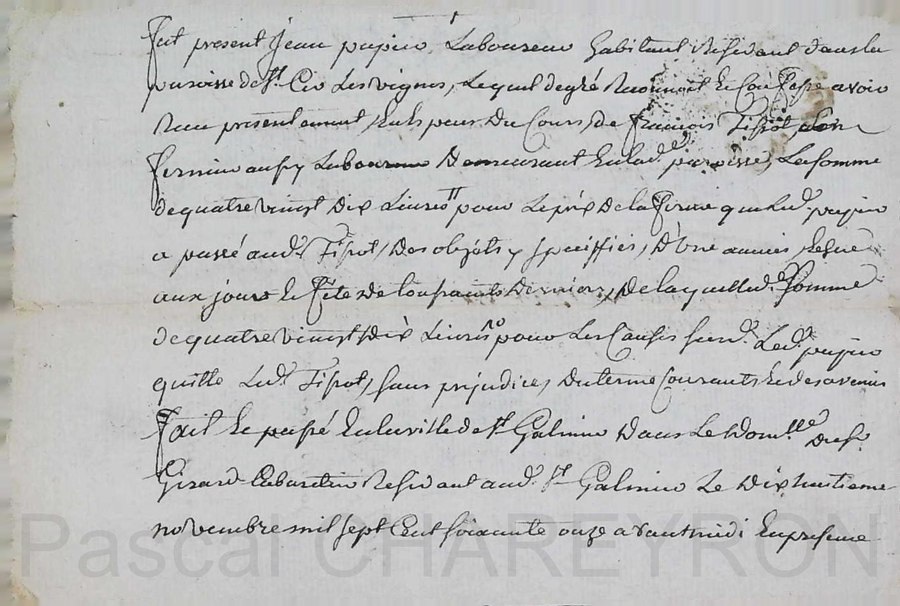 fut present Jean pupier Laboureur habitant Residant dans la
paroisse de St. Cir Les vignes, Lequel de gré Reconnoit Et Confesse avoir
Receu presentement, Es peces Du Cours, de francois Tissot
fermier aussy Laboureur Demeurant En lad. paroisse, La somme
de quatre vingt dix Livres tt pour Le prix De la ferme que Led. pupier
a passé aud. Tissot, Des objets y spéciffiés, D'Une année Echue
aux jour Et fête de Toussaints Derniers, De laquelle d. Somme
de quatre vingt dix Livres pour Les Causes susd. Led. pupier
quitte Led. Tissot, sans prejudices, Du terme Courants Et des avenir
fait Et passé En la ville de St. Galmier Dans Le Domlle. Du sr.
Girard Cabaretier Residant aud. St. Galmier Le Dix huitieme
novembre mil sept Cent soixante onze avant midi En presence
Pascal CHAREYRON